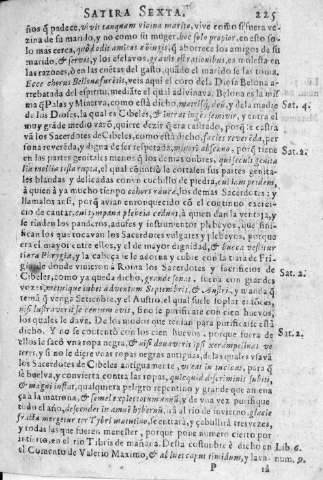 SATIRA SEXTA. 225
ños q̃ padece, vivit tanquam vicina marito, vive como si fuera ve-
zina de su marido, y no como su muger, hoc solo propior, en esto so-
lo mas cerca, quod odit amicos coniugis, q̃ aborrece los amigos de su
marido, & servos, y los esclavos, gravis est rationibus, es molesta en
las razones, ò en las cuētas del gasto, quādo el marido se las toma.
Ecce chorus Bellonæ furētis, veis aqui el coro de la Diosa Belona ar-
rebatada del espiritu, mediāte el qual adivinava. Belona es la mis-
ma q̃ Palas y Minerva, como està dicho, matrisq́; deū, y de la madre
de los Dioses, la qual es Cibeles, & intrat ingēs semivir, y entra el Sat. 4.
muy grāde medio varō, quiere dezir q̃ era castrado, porq̃ le castrā
và los Sacerdotes de Cibeles, como està dicho, facies reverēda, per
sona reverēda, y digna de ser respetada, minori obscæno, porq̃ tiene Sat. 2.
en las partes genitales menos q̃ los demas ombres, qui secuit genita
lia mollia testa rapta, el qual cō
talles blandas y delicadas con vn cuchillo de piedra, cui iam pridem,
à quien à ya mucho tiempo cohors rauca, los demas Sacerdotes:
llamalos assi, porq̃ avian enronquecido cō el continuo exerci-
cio de cantar, cui tympana plebeia cedunt, à quien dan la ventaja, y
se rinden los panderos, adufes y instrumentos plebeyos, que sini-
fican los que tocavan los Sacerdotes vulgares y plebeyos, porque
era el mayor entre ellos, y el de mayor dignidad, & bucca vestitur
tiara Phrygia, y la cabeça le adorna y cubre con la tiara de Fri-
gia, de donde vinieron à Roma los Sacerdotes y sacrificios de
Cibeles, como ya queda dicho, grande sonat, suena con grandes Sat. 2.
vozes, metuique iubet adventum Septembris, & Austri, y manda q̃
tema q̃ venga Setiembre, y el Austro, el qual suele soplar
nisi lustraverit se centum ovis, sino se purificare con cien huevos,
los quales le dava. De los modos que tenian para purificarse està
dicho. Y no se contentò con cien huevos, porque fuera de Sat. 2.
ellos le sacò vna ropa negra, & nisi donaverit ipsi xerampelinas ve
teres, y si no le diere vnas ropas negras antiguas, de las quales vsavā
los Sacerdotes de Cibeles antiguamente, vt eat in tunicas, para q̃
se buelva, y convierta contra las ropas, quicquid discriminis subiti,
& magni instat, qualquiera peligro repentino y grande que amena
ça à la matrona, & semel expiet totum annū, y de vna vez purifique
todo el año, descendet in amnē hybernū, irà al rio de invierno, glacie
fracta mergetur ter Tybri matutino, se entrarà, y çabullirà tres vezes,
y todas las que fueren menester, porque pone numero cierto por
incierto, en el rio Tibris de mañana. Desta costumbre è dicho en Lib. 6.
el Comento de Valerio Maximo, & abluet caput timidum, y lava- num. 9.
P rà